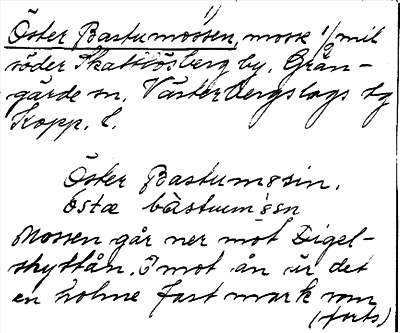 Öster Bastumossen, mosse 1/2 mil
söder Skattlösberg by. Grän-
gärde sn. Västerbergslags dg
Kopp. l.
Öster Bastumosin.
Mossen går ner mot Digel-
skyttån. I mot ån är det
en holme fast mark som
(forts)